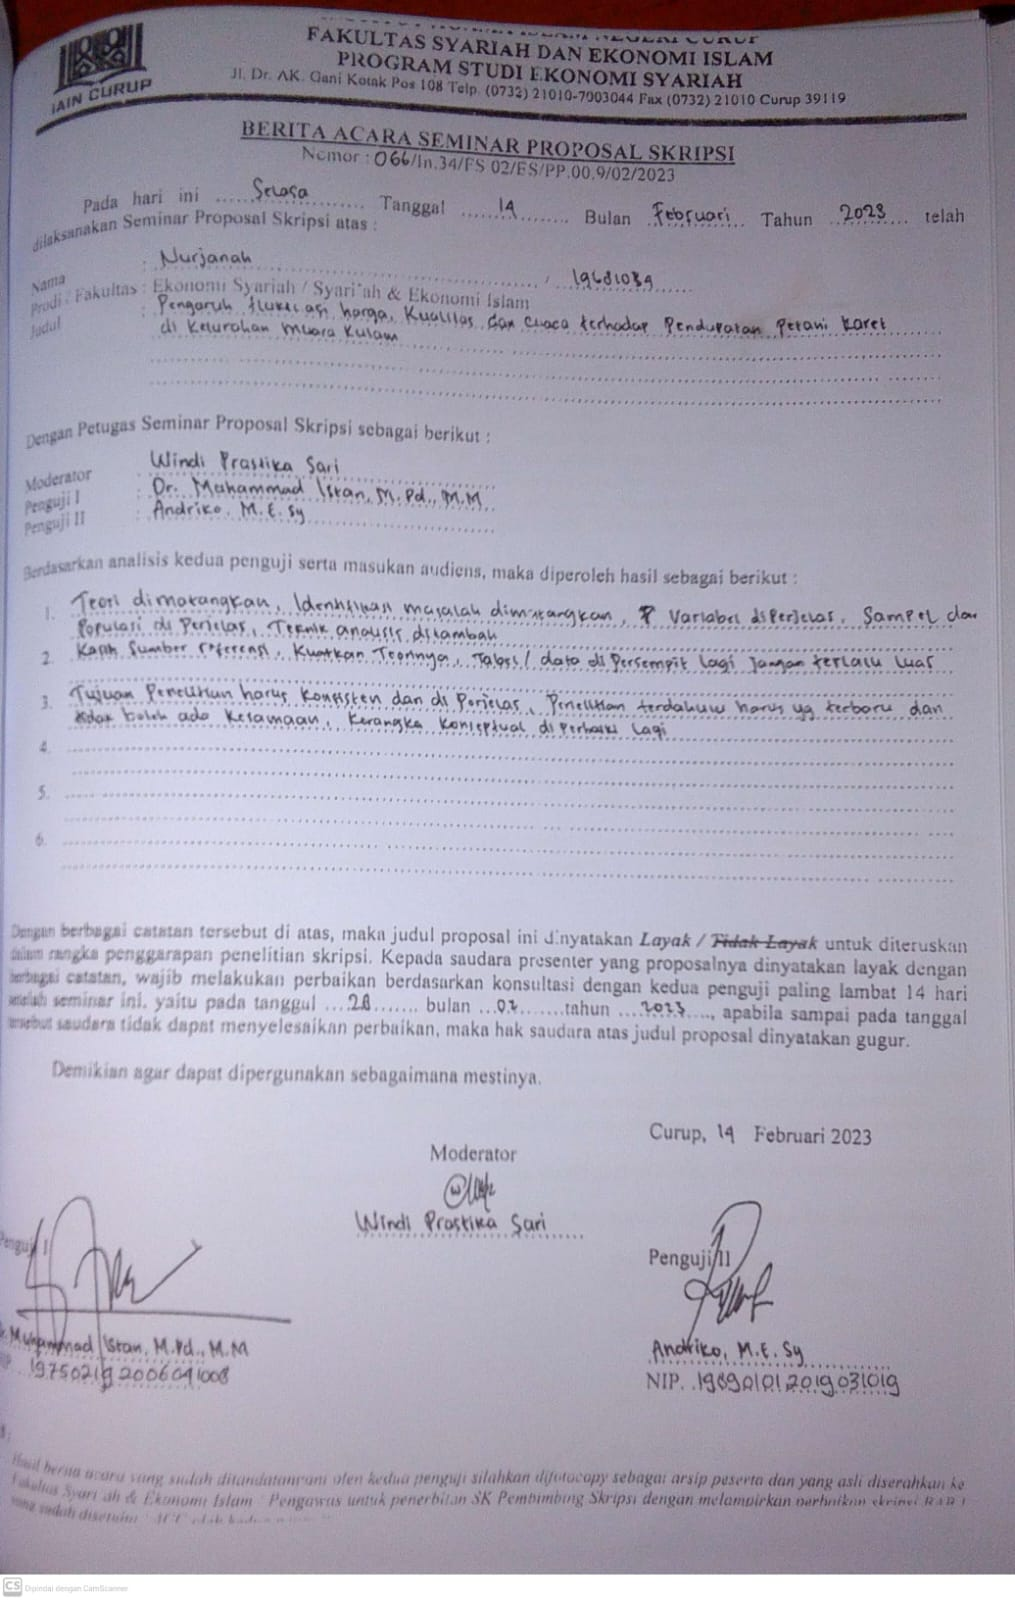 IAIN CURUP
FAKULTAS SYARIAH DAN EKONOMI ISLAM
PROGRAM STUDI EKONOMI SYARIAH
Jl. Dr. AK. Gani Kotak Pos 108 Telp. (0732) 21010-7003044 Fax (0732) 21010 Curup 39119
BERITA ACARA SEMINAR PROPOSAL SKRIPSI
Nomor : 066/In.34/FS 02/ES/PP.00.9/02/2023
Pada hari ini Selasa Tanggal 14 Bulan Februari Tahun 2023 telah
dilaksanakan Seminar Proposal Skripsi atas :
Nama : Nurjanah / 19681039
Prodi / Fakultas : Ekonomi Syariah / Syari'ah & Ekonomi Islam
Judul : Pengaruh flukuasi harga, Kualitas dan Cuaca terhadap Pendapatan Petani Karet
di Kelurahan Muara Kulam
Dengan Petugas Seminar Proposal Skripsi sebagai berikut :
Moderator : Windi Prastika Sari
Penguji I : Dr. Muhammad Istan, M.Pd., M.M
Penguji II : Andriko, M.E.Sy
Berdasarkan analisis kedua penguji serta masukan audiens, maka diperoleh hasil sebagai berikut :
1. Teori dimatangkan, Identifikasi masalah dimatangkan, Variabel diperjelas, Sampel dan
Populasi di Perjelas, Teknik analisis ditambah
2. Sumber referensi, Kuatkan Teorinya, data di Persempit lagi jangan terlalu luas
3. Tujuan Penelitian harus Konsisten dan di Perjelas, Penelitian terdahulu harus yg terbaru dan
tidak boleh ada Kesamaan, Kerangka Konseptual di Perbaiki lagi
4.
5.
6.
Dengan berbagai catatan tersebut di atas, maka judul proposal ini dinyatakan Layak / Tidak Layak untuk diteruskan
dalam rangka penggarapan penelitian skripsi. Kepada saudara presenter yang proposalnya dinyatakan layak dengan
berbagai catatan, wajib melakukan perbaikan berdasarkan konsultasi dengan kedua penguji paling lambat 14 hari
setelah seminar ini, yaitu pada tanggal 28 bulan 02 tahun 2023, apabila sampai pada tanggal
tersebut saudara tidak dapat menyelesaikan perbaikan, maka hak saudara atas judul proposal dinyatakan gugur.
Demikian agar dapat dipergunakan sebagaimana mestinya.
Curup, 14 Februari 2023
Moderator
Windi Prastika Sari
Penguji I
Muhammad Istan, M.Pd., M.M
197502192006041008
Penguji II
Andriko, M.E.Sy
NIP. 198901012019031019
Hasil berita acara yang sudah ditandatangani oleh kedua penguji silahkan difotocopy sebagai arsip peserta dan yang asli diserahkan ke
Fakultas Syari'ah & Ekonomi Islam / Pengawas untuk penerbitan SK Pembimbing Skripsi dengan melampirkan perbaikan skripsi BAB I
yang sudah disetujui
CS Dipindai dengan CamScanner